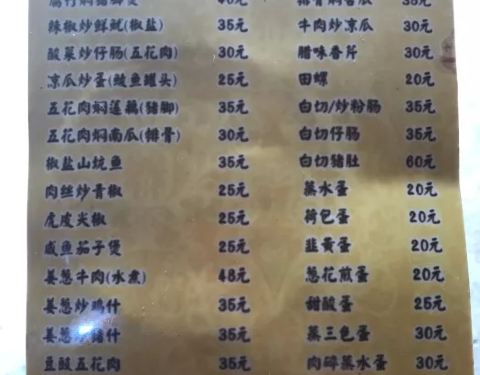 辣椒炒鲜鱿(椒盐) 35元
酸菜炒仔肠(五花肉) 30元
凉瓜炒蛋(鲮鱼罐头) 25元
五花肉焖莲藕(猪脚) 35元
五花肉焖南瓜(排骨) 30元
椒盐山坑鱼 35元
肉丝炒青椒 25元
虎皮尖椒 25元
咸鱼茄子煲 25元
姜葱牛肉(水煮) 48元
姜葱炒鸡什 35元
姜葱 猪什 35元
豆豉五花肉 35元
35元
牛肉炒凉瓜 30元
腊味香芹 30元
田螺 20元
白切/炒粉肠 35元
白切仔肠 35元
白切猪肚 60元
蒸水蛋 20元
荷包蛋 20元
韭黄蛋 20元
葱花煎蛋 20元
甜酸蛋 25元
蒸三色蛋 30元
肉碎蒸水蛋 30元